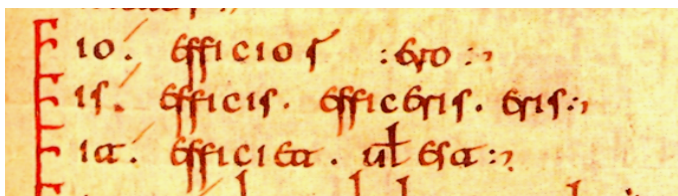 Fio. efficior :ero:,
Fis. efficis. efficeris. eris:,
Fit. efficiet. uł est:,